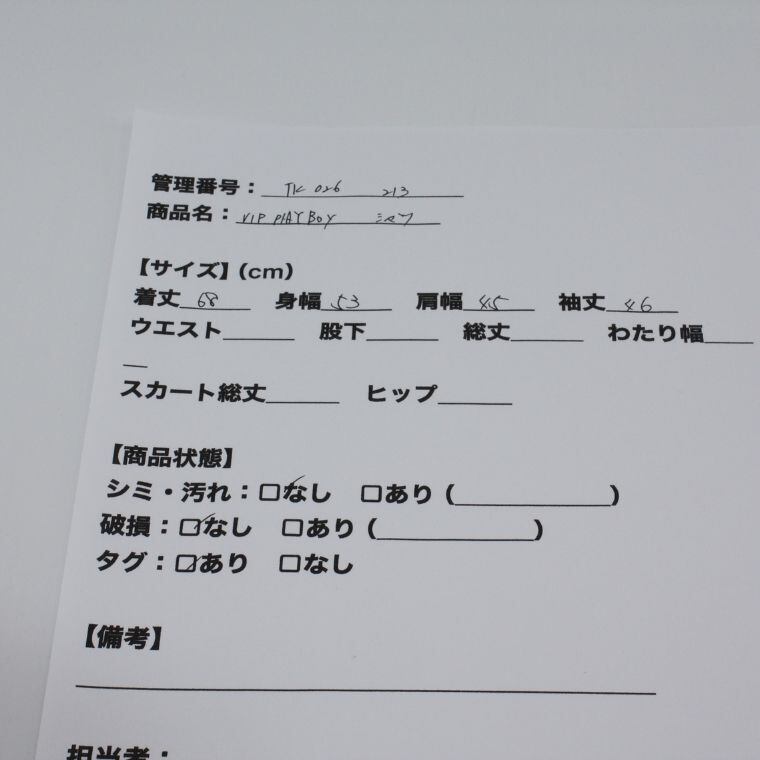 管理番号：TK 026 213
商品名：VIP PLAY BOY シャツ
【サイズ】(cm)
着丈 68 身幅 53 肩幅 45 袖丈 46
ウエスト______ 股下______ 総丈______ わたり幅____
__
スカート総丈______ ヒップ______
【商品状態】
シミ・汚れ：☑なし □あり (_____________)
破損：☑なし □あり (_____________)
タグ：☑あり □なし
【備考】
担当者：